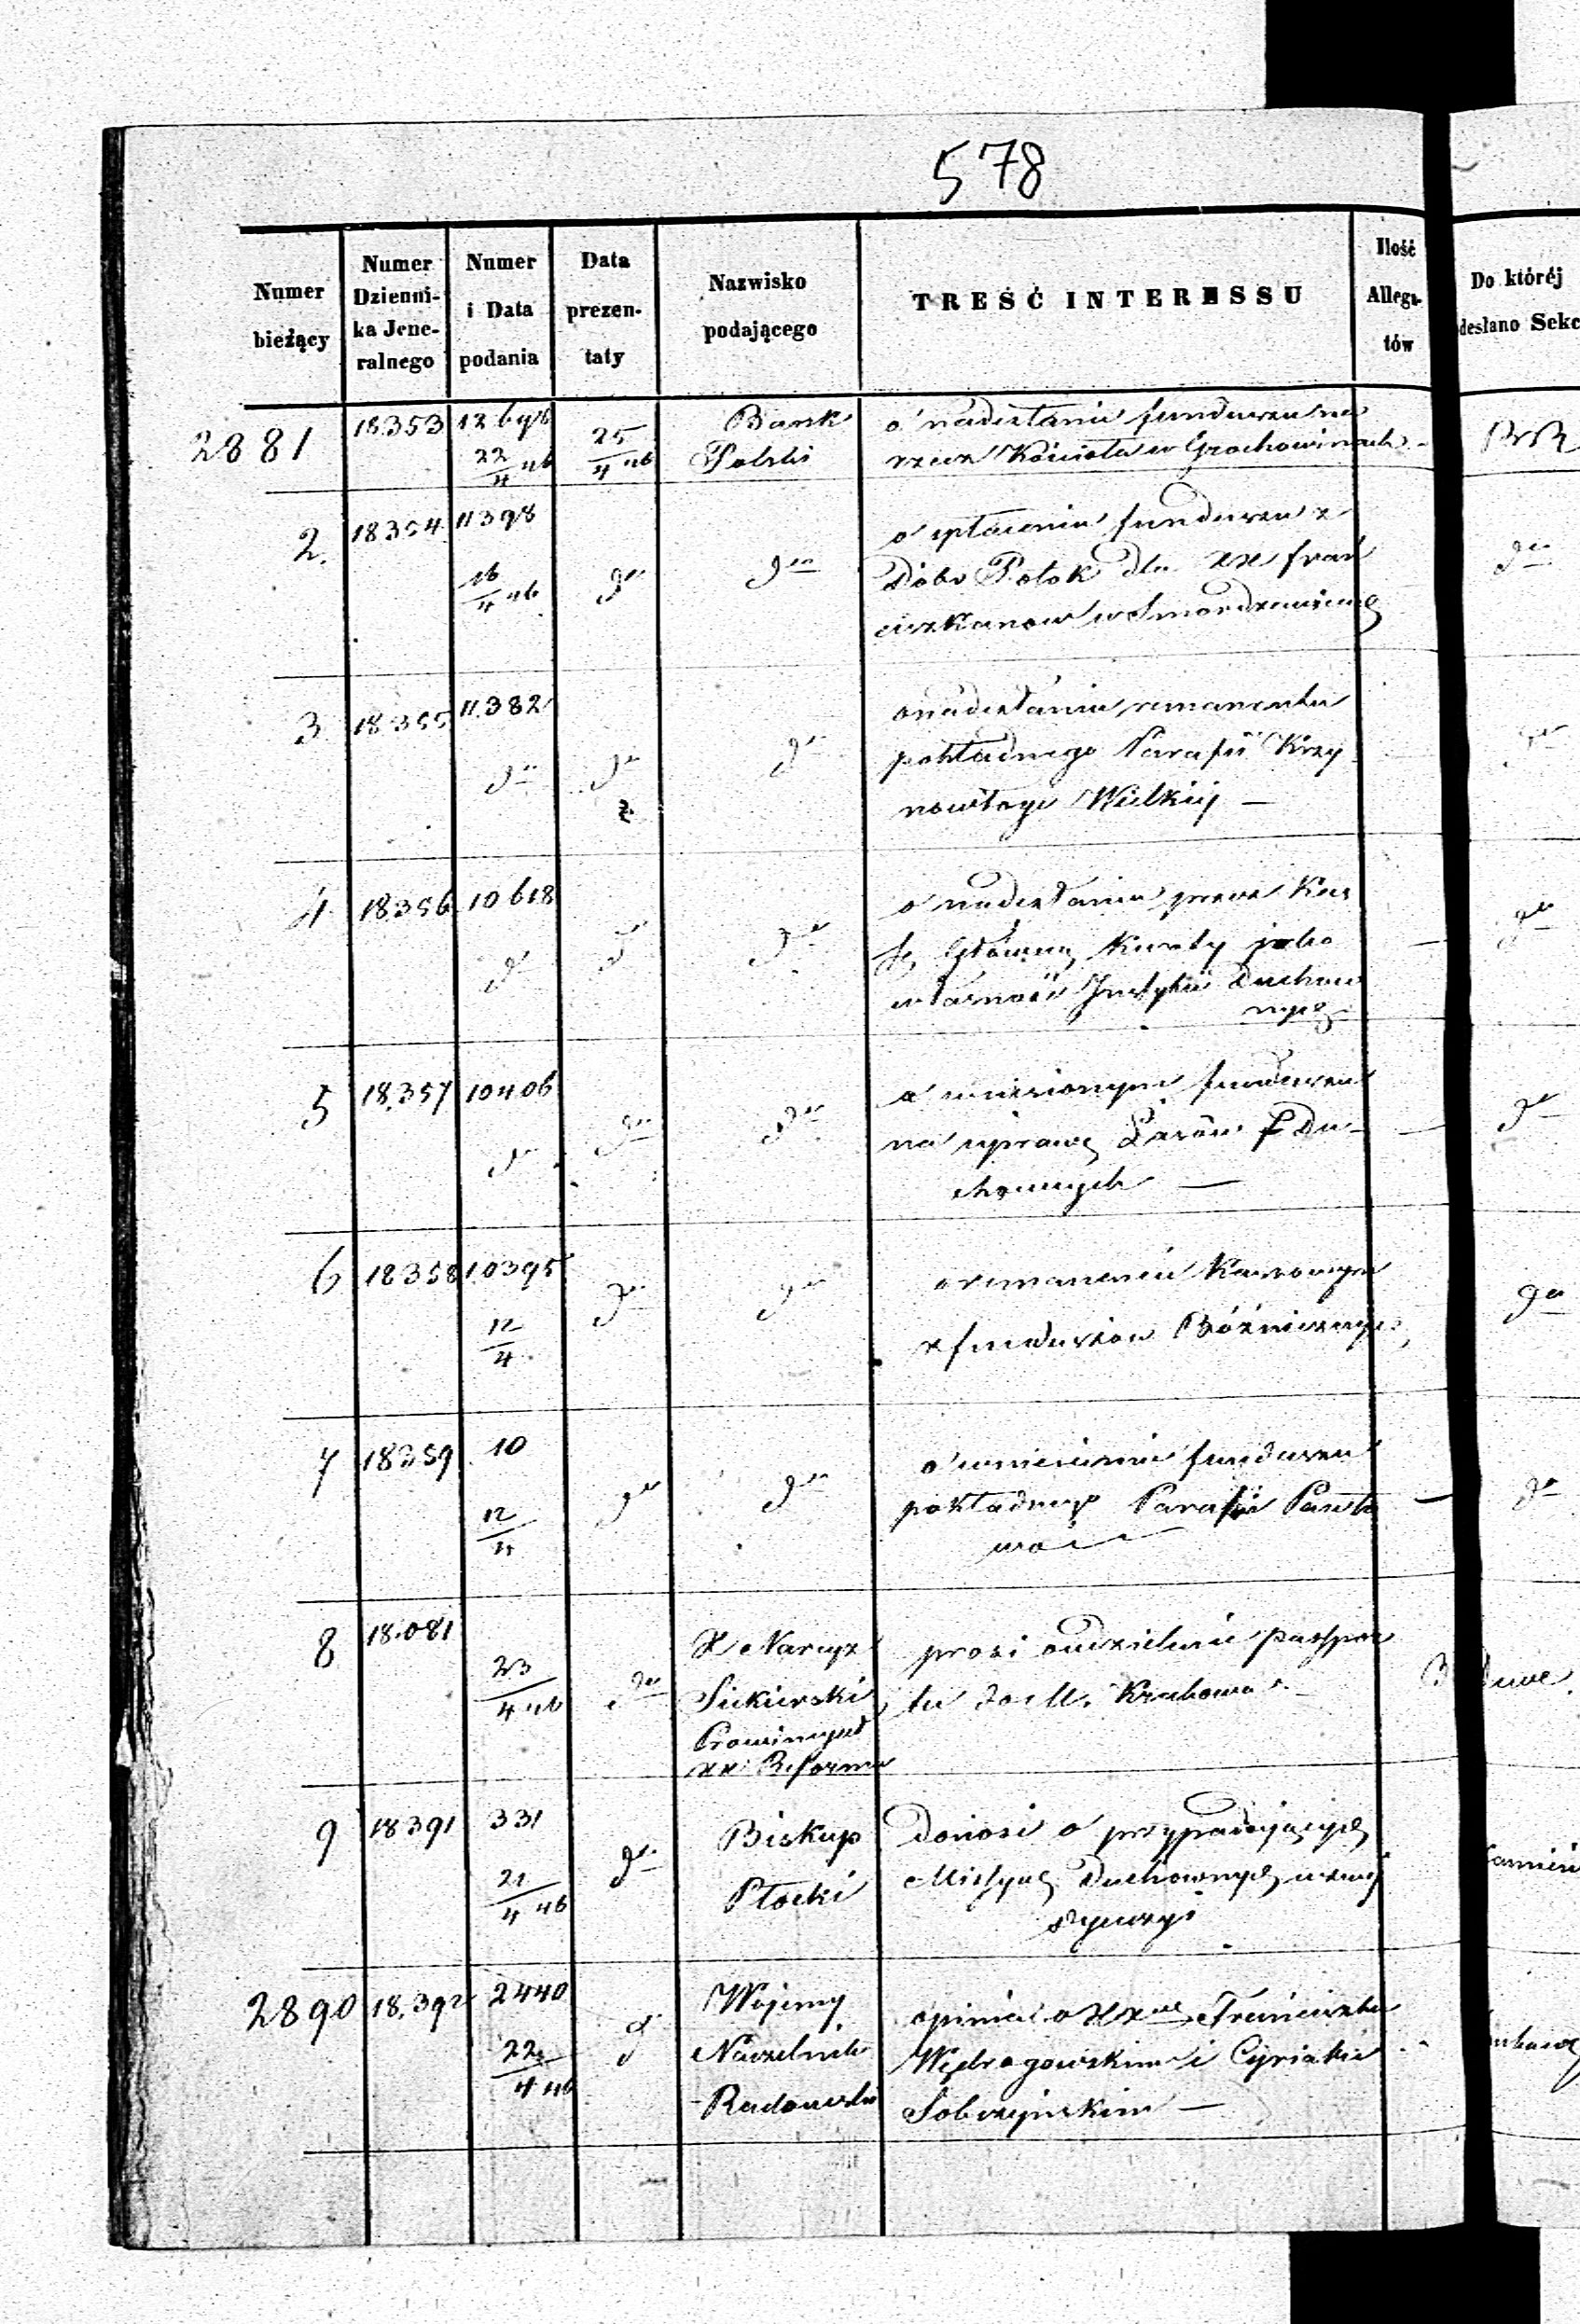 578
Numer bieżący | Numer Dzienni- ka Jene- ralnego | Numer i Data podania | Data prezen- taty | Nazwisko podającego | TREŚĆ INTERESSU | Ilość Allega- tów | Do któréj desłano Sekc
2881 | 18353 | 12698 22/4 46 | 25/4 46 | Bank Polski | o nadesłaniu funduszu na
rzecz Kościoła w Grochowinach
2. | 18354 | 11398 16/4 46 | dto | dto | o wpłaceniu funduszu z | dto
Dóbr Potok dla XX Fran
ciszkanow w Smardzewicach
3 | 18355 | 11.382 dto | dto | dto | o nadesłaniu remanentu | dto
pokładnego Parafii Krzy
nowłogi Wielkiej —
4 | 18356 | 10618 dto | dto | dto | o nadesłaniu przez Kas | dto
sę Główną Kwoty jako
własność Instytu Duchow
nych
5 | 18.357 | 10406 dto | dto | dto | o wniesionym funduszu | dto
na uprawę Lasów Du-
chownych —
6 | 18358 | 10395 12/4 | dto | dto | o remanencie Kassowym | dto
z funduszow Bóżniczych
7 | 18359 | 10 12/4 | dto | dto | o wniesieniu funduszu | dto
pokładnego Parafii Pawło
wo
8 | 18.081 | 23/4 46 | dto | X Narcyz Siekierski Prowincyał XX Reforma | prosi o udzielenie paszpor
tu do M. Krakowa
9 | 18391 | 331 21/4 46 | dto | Biskup Płocki | donosi o przypadających
Missyach Duchownych w
2890 | 18.392 | 2440 22/4 46 | d | Wojenny Naczelnik Radomski | opinia o XX Franciszku
Wędrogowskim i Cyriaku
Sobczyńskim —